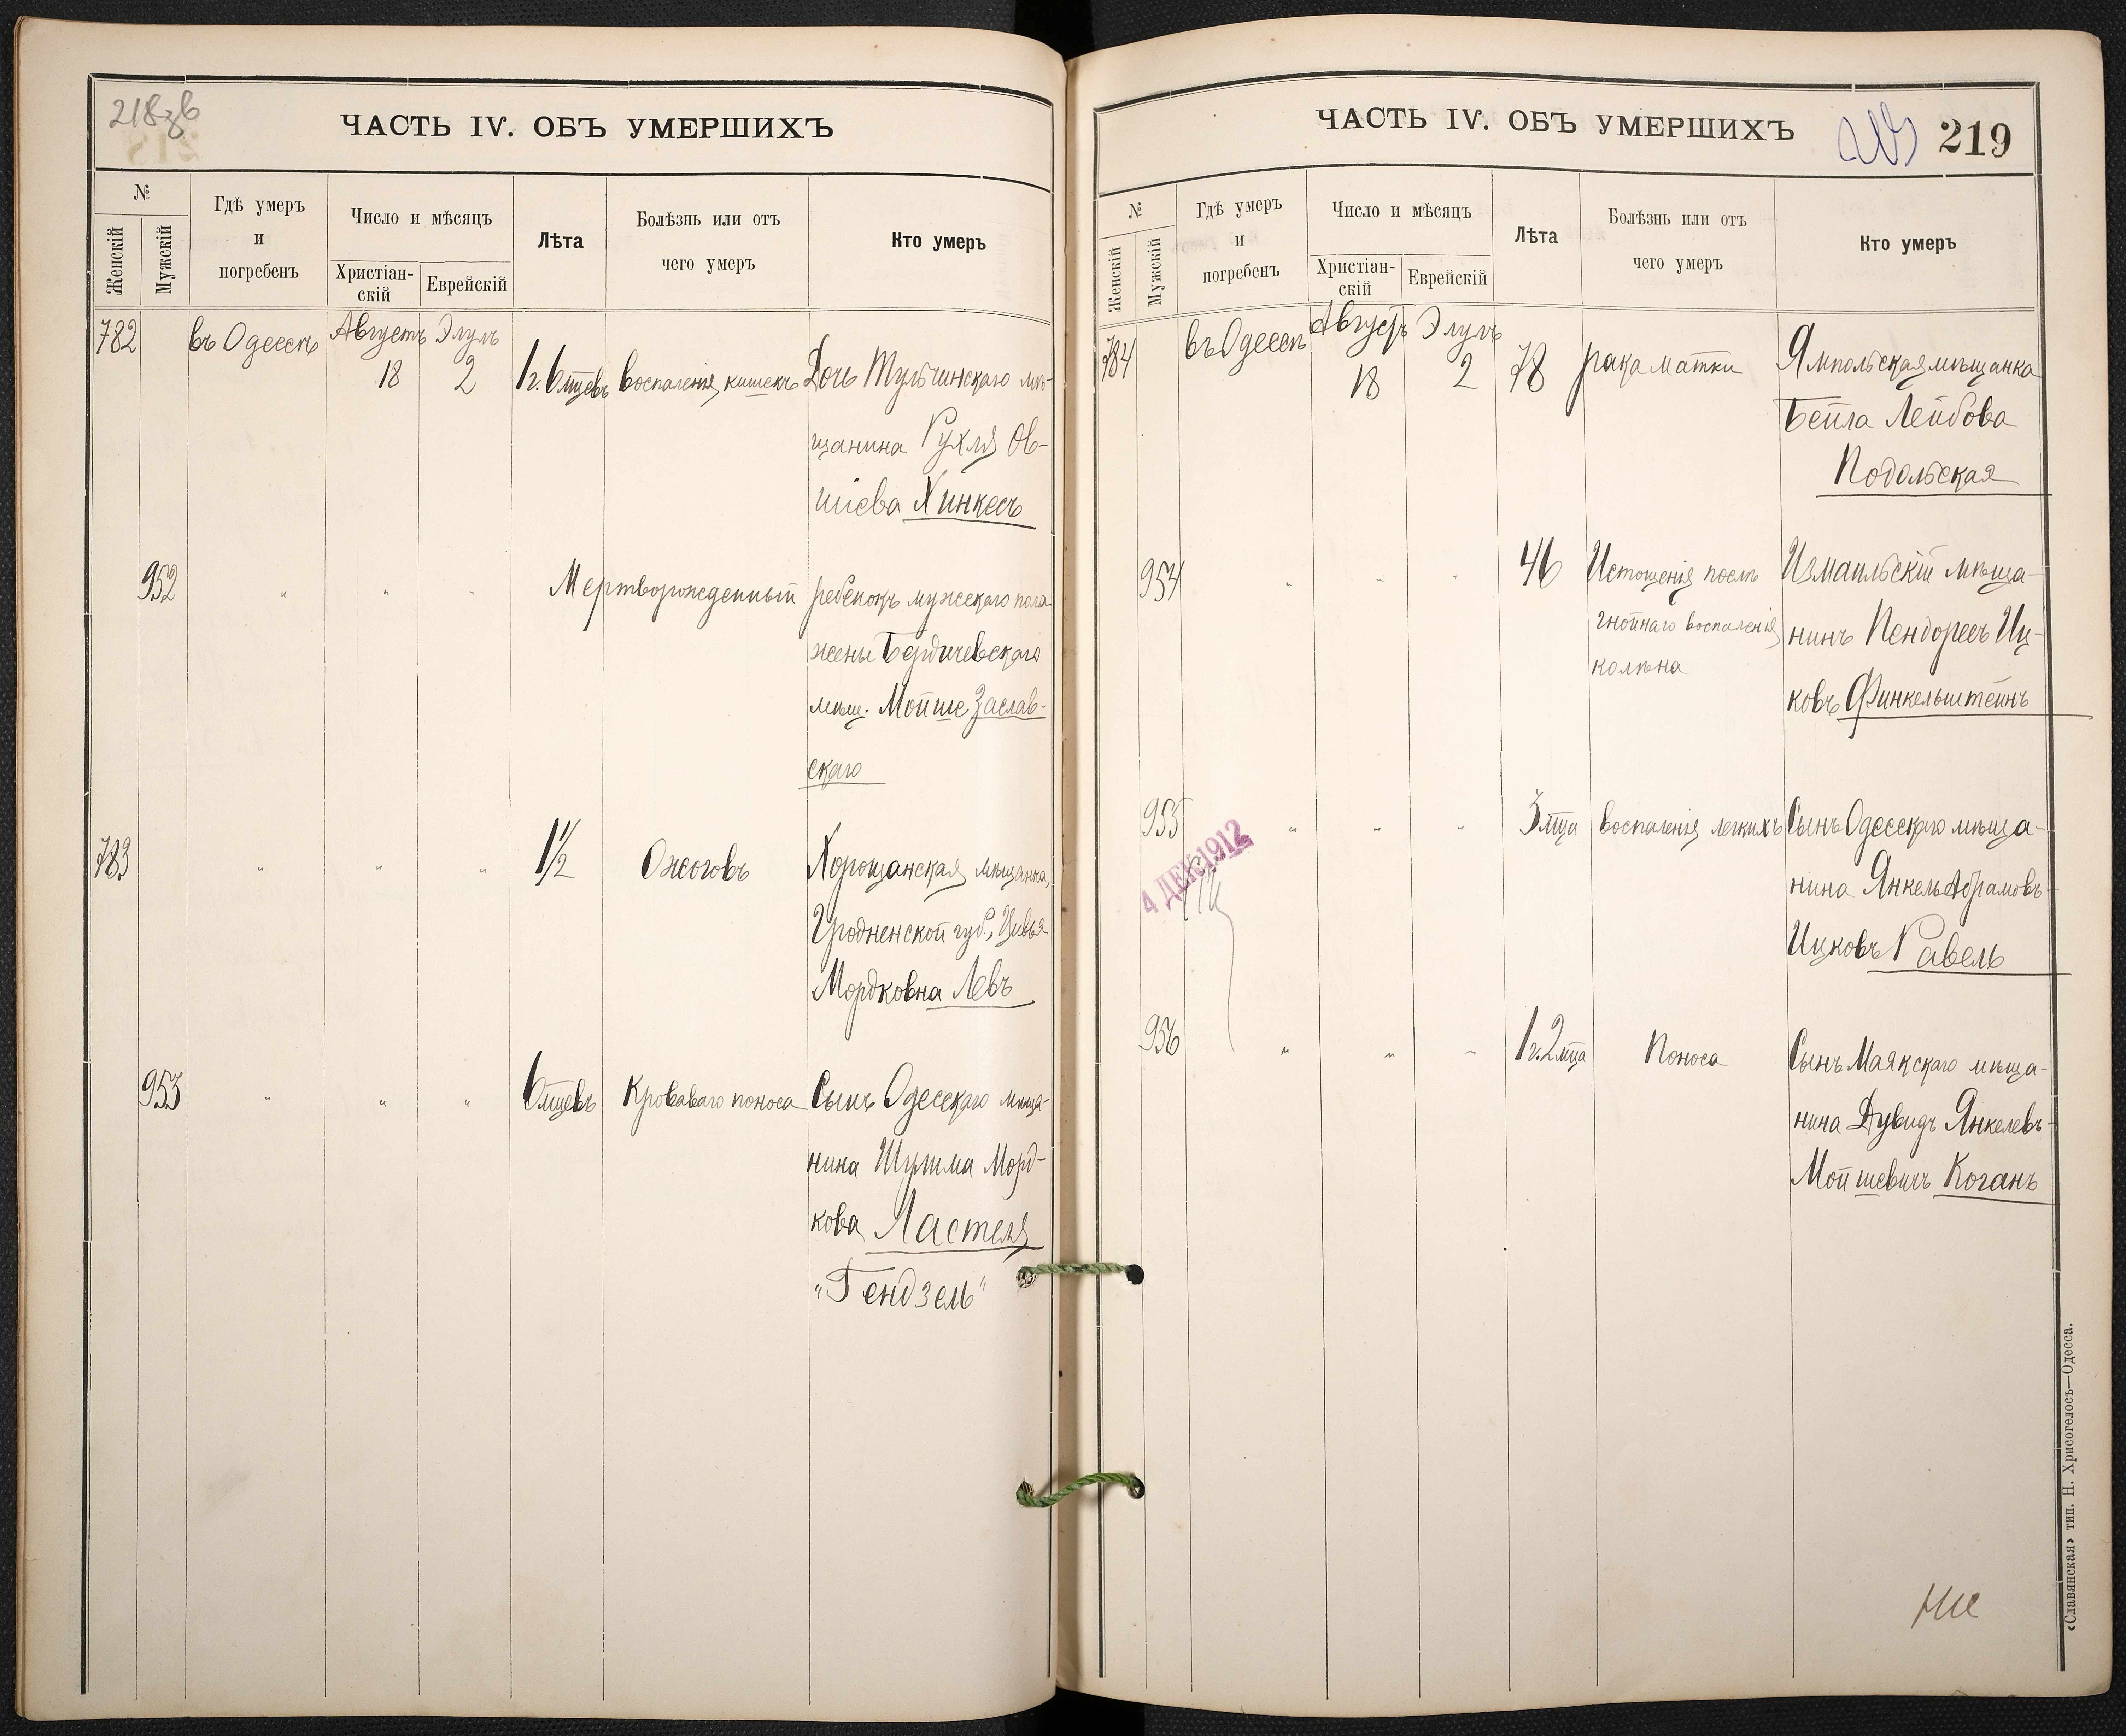 218 об
ЧАСТЬ IV. ОБЪ УМЕРШИХЪ
№
Женскій
Мужскій
Гдѣ умеръ
и
погребенъ
Число и мѣсяцъ
Христіан-
скій
Еврейскій
Лѣта
Болѣзнь или отъ
чего умеръ
Кто умеръ
782
въ Одессѣ
Августъ Элулъ
18 2
1 г. 6 мцевъ
воспаленія кишекъ
Дочь Тульчинскаго мѣ-
щанина Рухля Ов-
шіева Хинкесъ
952
" " "
Мертворожденный
ребенокъ мужескаго пола
жены Бердичевскаго
мѣщ. Мойше Заслав-
скаго
783
" " "
1½
Ожоговъ
Хорощанская мѣщанка,
Гродненской губ., Цивья
Мордковна Левъ
953
" " "
6 мцевъ
Кроваваго поноса
Сынъ Одесскаго мѣща-
нина Шулима Морд-
кова Ластеля
"Гендзель"
ЧАСТЬ IV. ОБЪ УМЕРШИХЪ
219
№
Женскій
Мужскій
Гдѣ умеръ
и
погребенъ
Число и мѣсяцъ
Христіан-
скій
Еврейскій
Лѣта
Болѣзнь или отъ
чего умеръ
Кто умеръ
784
въ Одессѣ
Августъ Элулъ
18 2
78
рака матки
Ямпольская мѣщанка
Бейла Лейбова
Подольская
954
" " "
46
Истощенія послѣ
гнойнаго воспаленія
колѣна
Измаильскій мѣща-
нинъ Пендоресъ Иц-
ковъ Финкельштейнъ
955
" " "
3 мца
воспаленія легкихъ
Сынъ Одесскаго мѣща-
нина Янкель Абрамовъ-
Ицковъ Равель
4 ДЕК 1912
956
" " "
1 г. 2 мца
Поноса
Сынъ Маякскаго мѣща-
нина Дувидъ Янкелевъ-
Мойшевичъ Коганъ
«Славянская» тип. Н. Хрисогелосъ—Одесса.